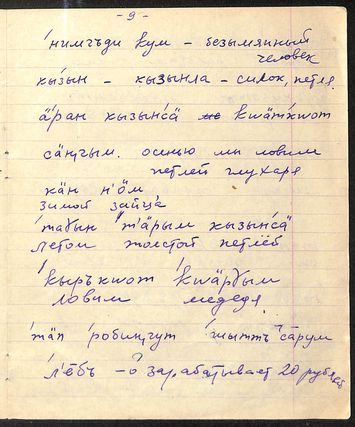 -9-
'нимчъди кум – безымянный
человек
кы́зын – кызынла – силок, петля.
ӓ́ран кызынсӓ кшӓт́кшот
сӓӊгым. осенью мы ловим
петлей глухаря
кӓн н'ӧм
зимой зайца
'таɣын 'тӓрым кызынсӓ
летом толстой петлёй
'кыръкшот 'кшӓрɣым
ловим медедя
'тӓп 'робиӊгут 'шыттъ сӓрум
'лёбъ – о зарабатывает 20 рублей